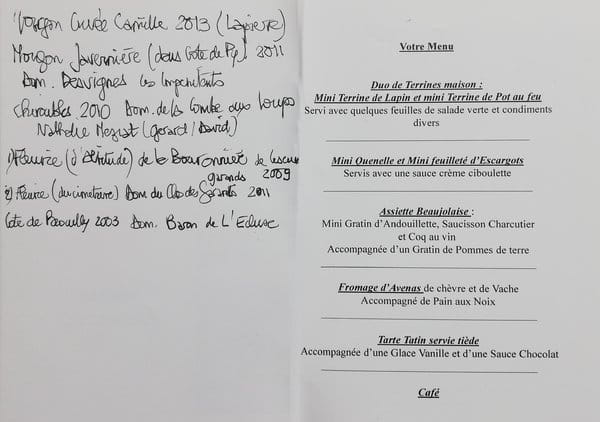 Morgon Cuvée Camille 2013 (Lapierre)
Morgon Javernière (dans Cote de Py) 2011
Dom. Desvignes les Impenitents
Chiroubles 2010 Dom. de la Combe aux Loups
(Gerard / David)
1) Fleurie (d'altitude) de la
2009
2) Fleurie (du cimetaire) Dom du Clos des Garands 2011
Cote de Brouilly 2003 Dom. Baron de L'Ecluse
Votre Menu
Duo de Terrines maison :
Mini Terrine de Lapin et mini Terrine de Pot au feu
Servi avec quelques feuilles de salade verte et condiments
divers
Mini Quenelle et Mini feuilleté d'Escargots
Servis avec une sauce crème ciboulette
Assiette Beaujolaise :
Mini Gratin d'Andouillette, Saucisson Charcutier
et Coq au vin
Accompagnée d'un Gratin de Pommes de terre
Fromage d'Avenas de chèvre et de Vache
Accompagné de Pain aux Noix
Tarte Tatin servie tiède
Accompagnée d'une Glace Vanille et d'une Sauce Chocolat
Café